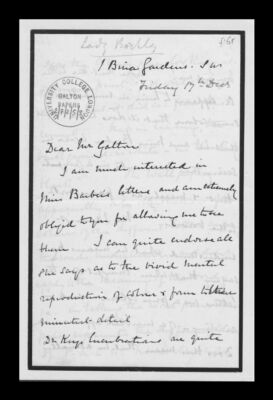 Lady Roll
1 Bina Gardens. S.W.
Friday 17th Decr
UNIVERSITY COLLEGE LONDON
GALTON
PAPERS
Dear Mr Galton
I am much interested in
Miss letters and am extremely
obliged to you for allowing me to see
them I can quite endorse all
she says as to the vivid mental
reproduction of colour & form to the
minutest detail
Dr Keys lucubrations are quite